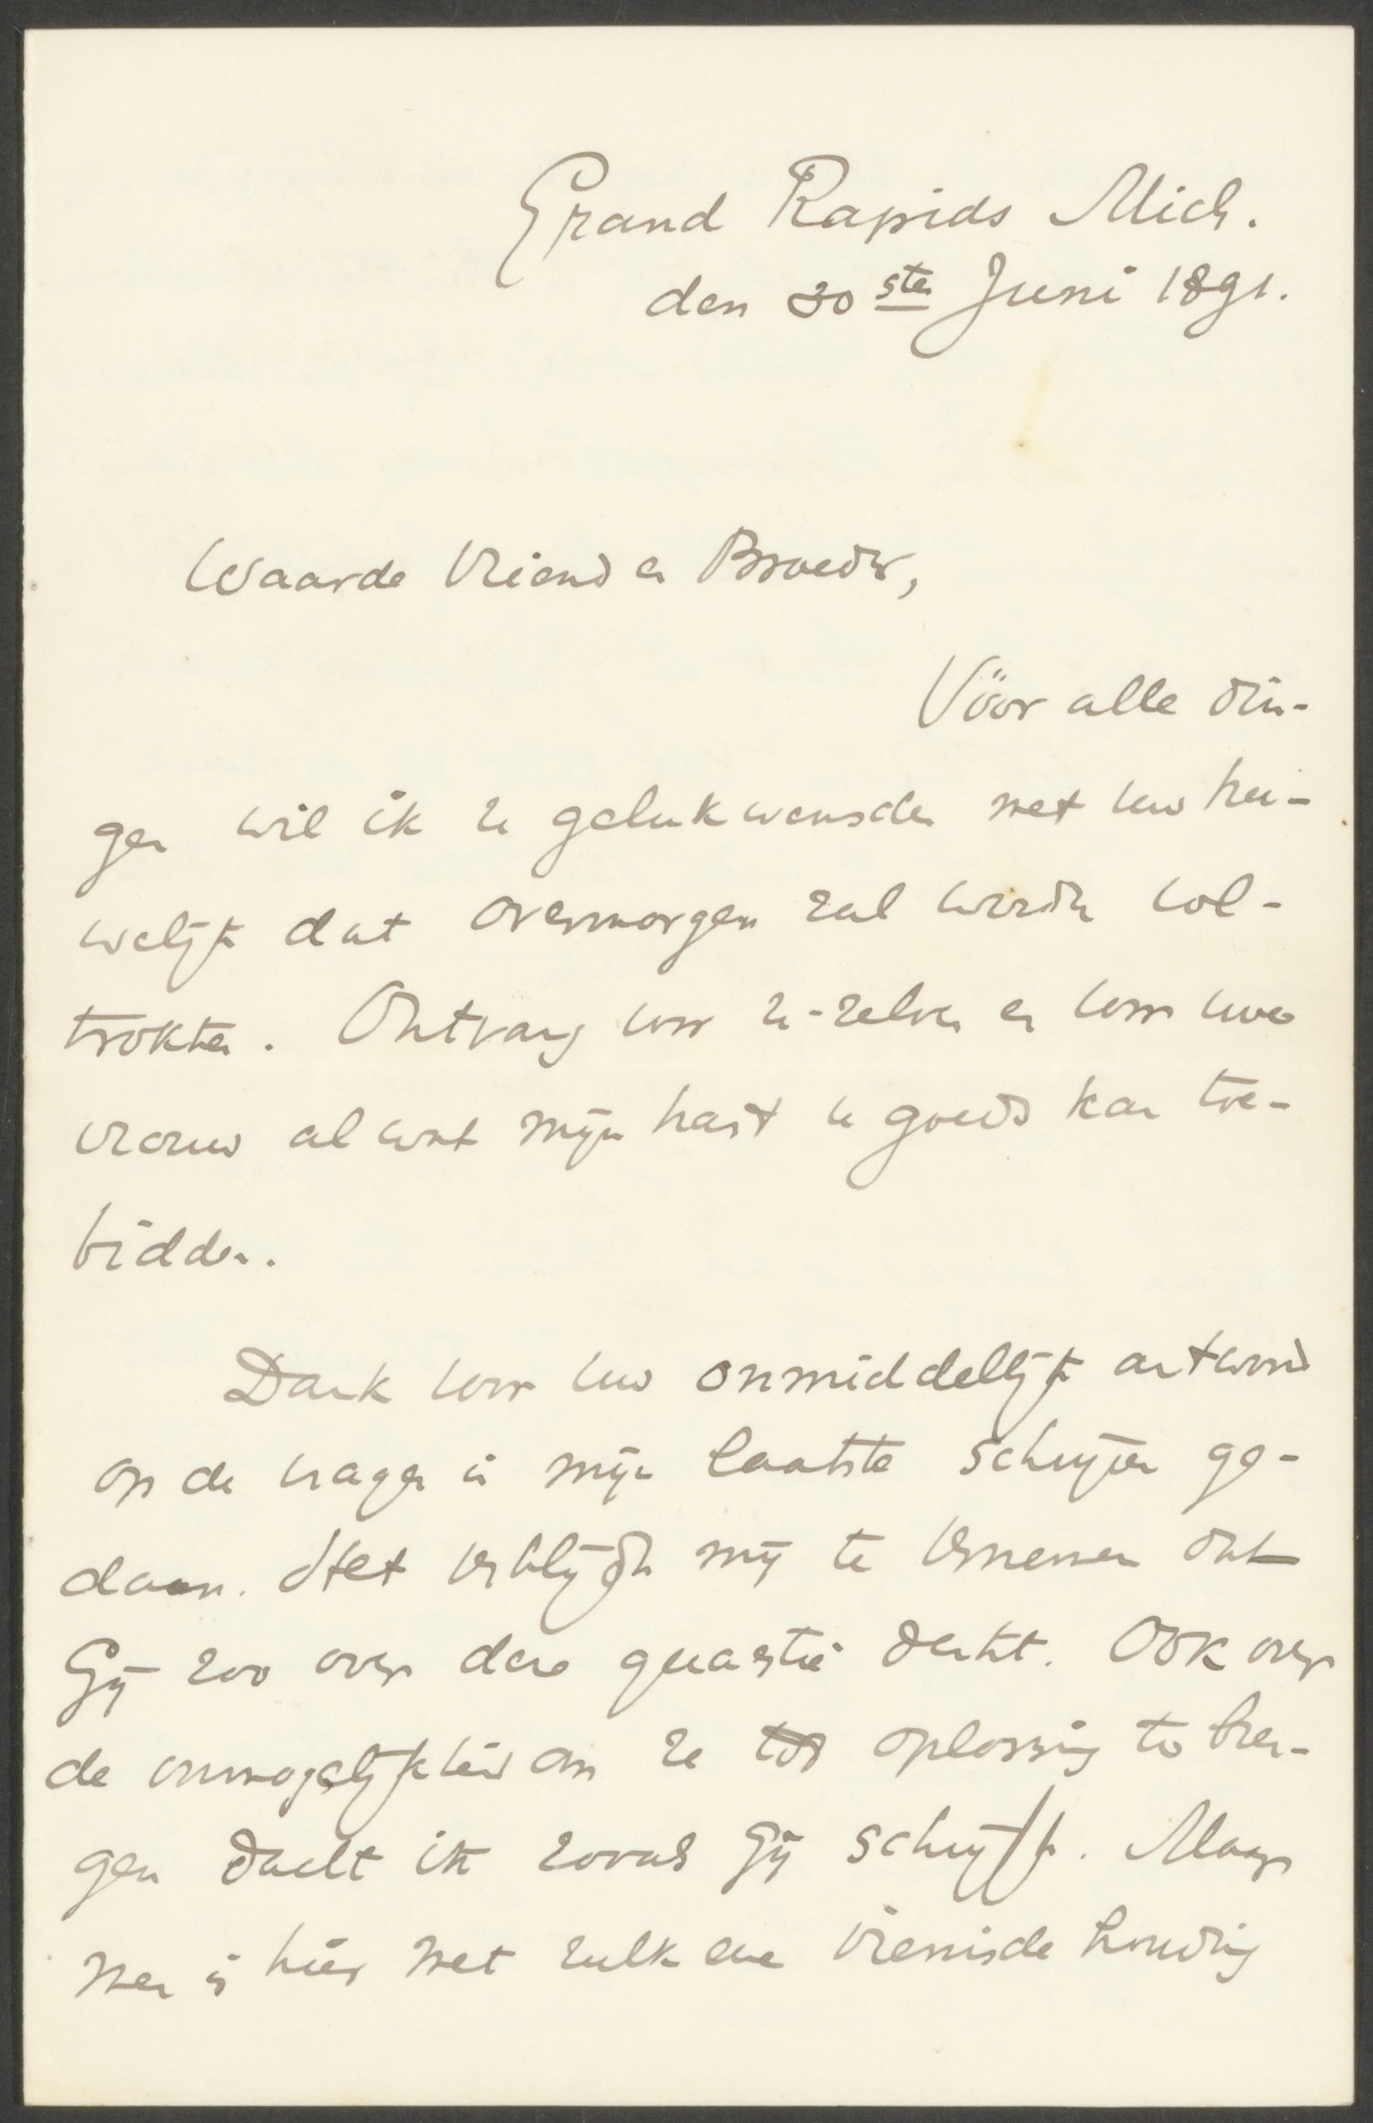 Grand Rapids Mich.
den 30ste Juni 1891.
Waarde Vriend en Broeder,
Vóór alle din-
gen wil ik U gelukwenschen met uw hu-
welijk dat overmorgen zal worden vol-
trokken. Ontvang voor U-zelven en voor uwe
vrouw al wat mijn hart U goeds kan toe-
bidden.
Dank voor uw onmiddellijk antwoord
op de vragen in mijn laatste schrijven ge-
daan. Het verblijdde mij te vernemen dat
Gij zoo over deze quaestie denkt. Ook over
de onmogelijkheid om ze tot oplossing te bren-
gen dacht ik zooals Gij schrijft. Maar
men is hier met zulk eene vreemde houding